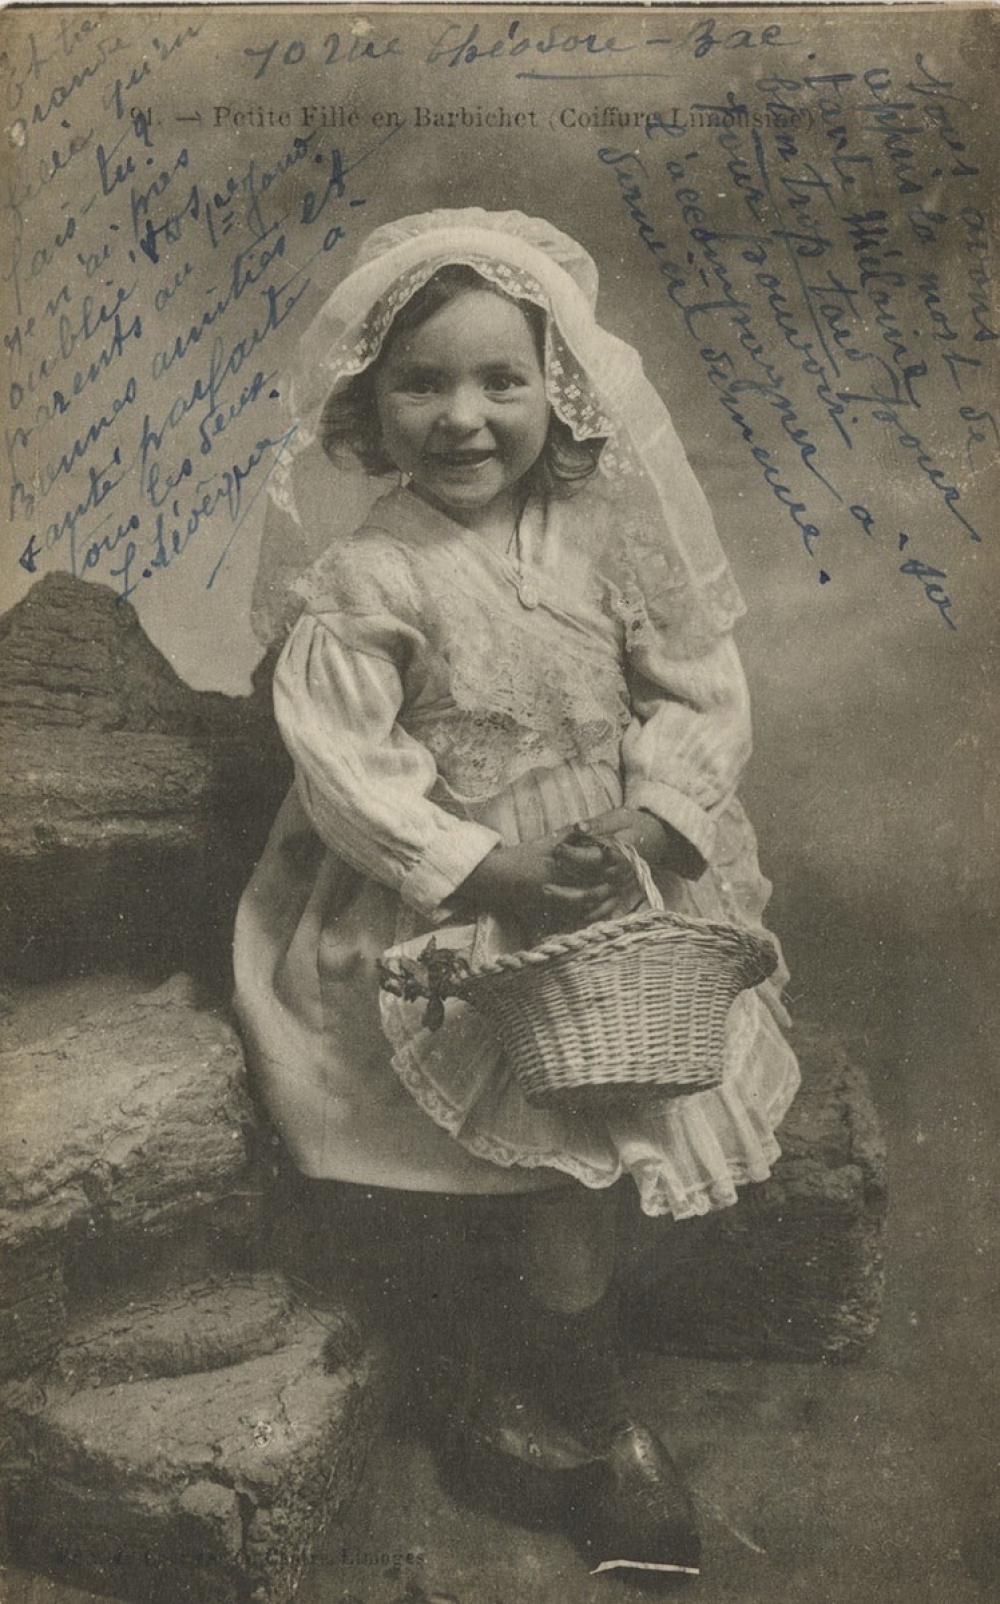 70 rue Théodore-Bac.
91. — Petite Fille en Barbichet (Coiffure Limousine)
Et ta
grande
fille qu'en
fais-tu?
je n'ai pas
oublié, tes
parents au 1er Janv.
Bonnes amitiés et
santé parfaite à
tous les deux.
L. Lévêque
Nous avons
appris la mort de
tante Mélanie
bien trop tard pour
pour pouvoir
l'accompagner à sa
dernière demeure.
Centre, Limoges